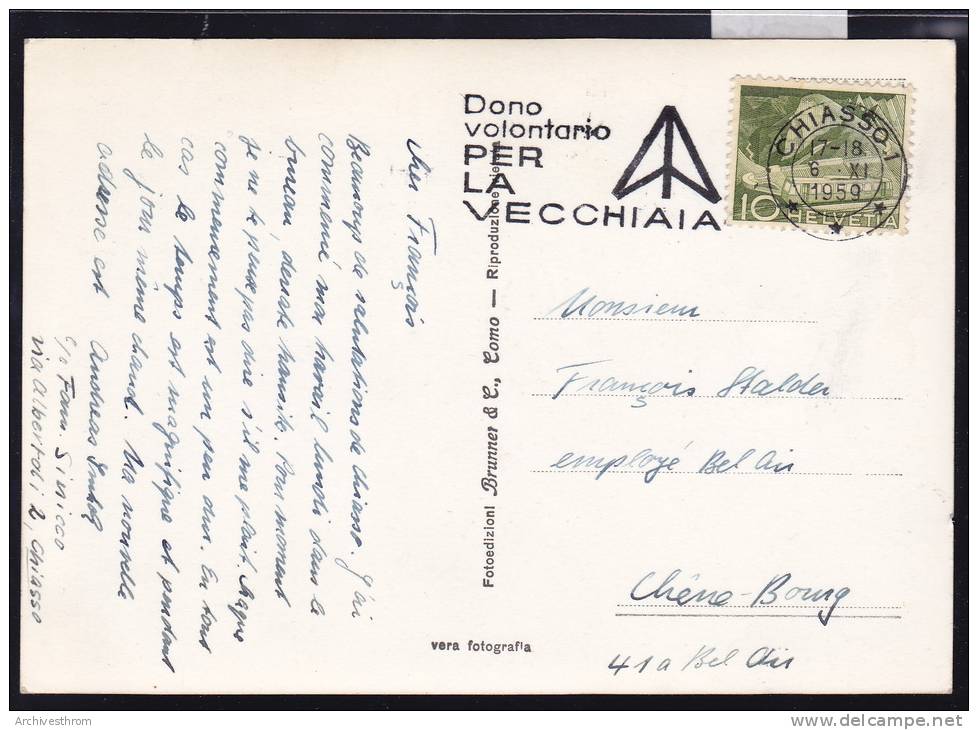 Dono
volontario
PER
LA
VECCHIAIA
CHIASSO 1
17-18
6 XI
1959
10 HELVETIA
François
Beaucoup de salutations de Chiasso. J'ai
commencé mon travail lundi dans le
bureau, transito. Pour moment
je ne le peux pas dire s'il me plait. Chaque
commencement est un peu dur. En tout
cas le temps est magnifique et pendant
le jour même chaud. Ma nouvelle
adresse est Andreas
c/o Fam. Sirico
via Albertolli 2, Chiasso
Fotoedizioni Brunner & C., Como — Riproduzione vietata
vera fotografia
Monsieur
François Stalder
employé Bel Air
Chêne-Bourg
41a Bel Air
Archivesthrom
delcampe.net